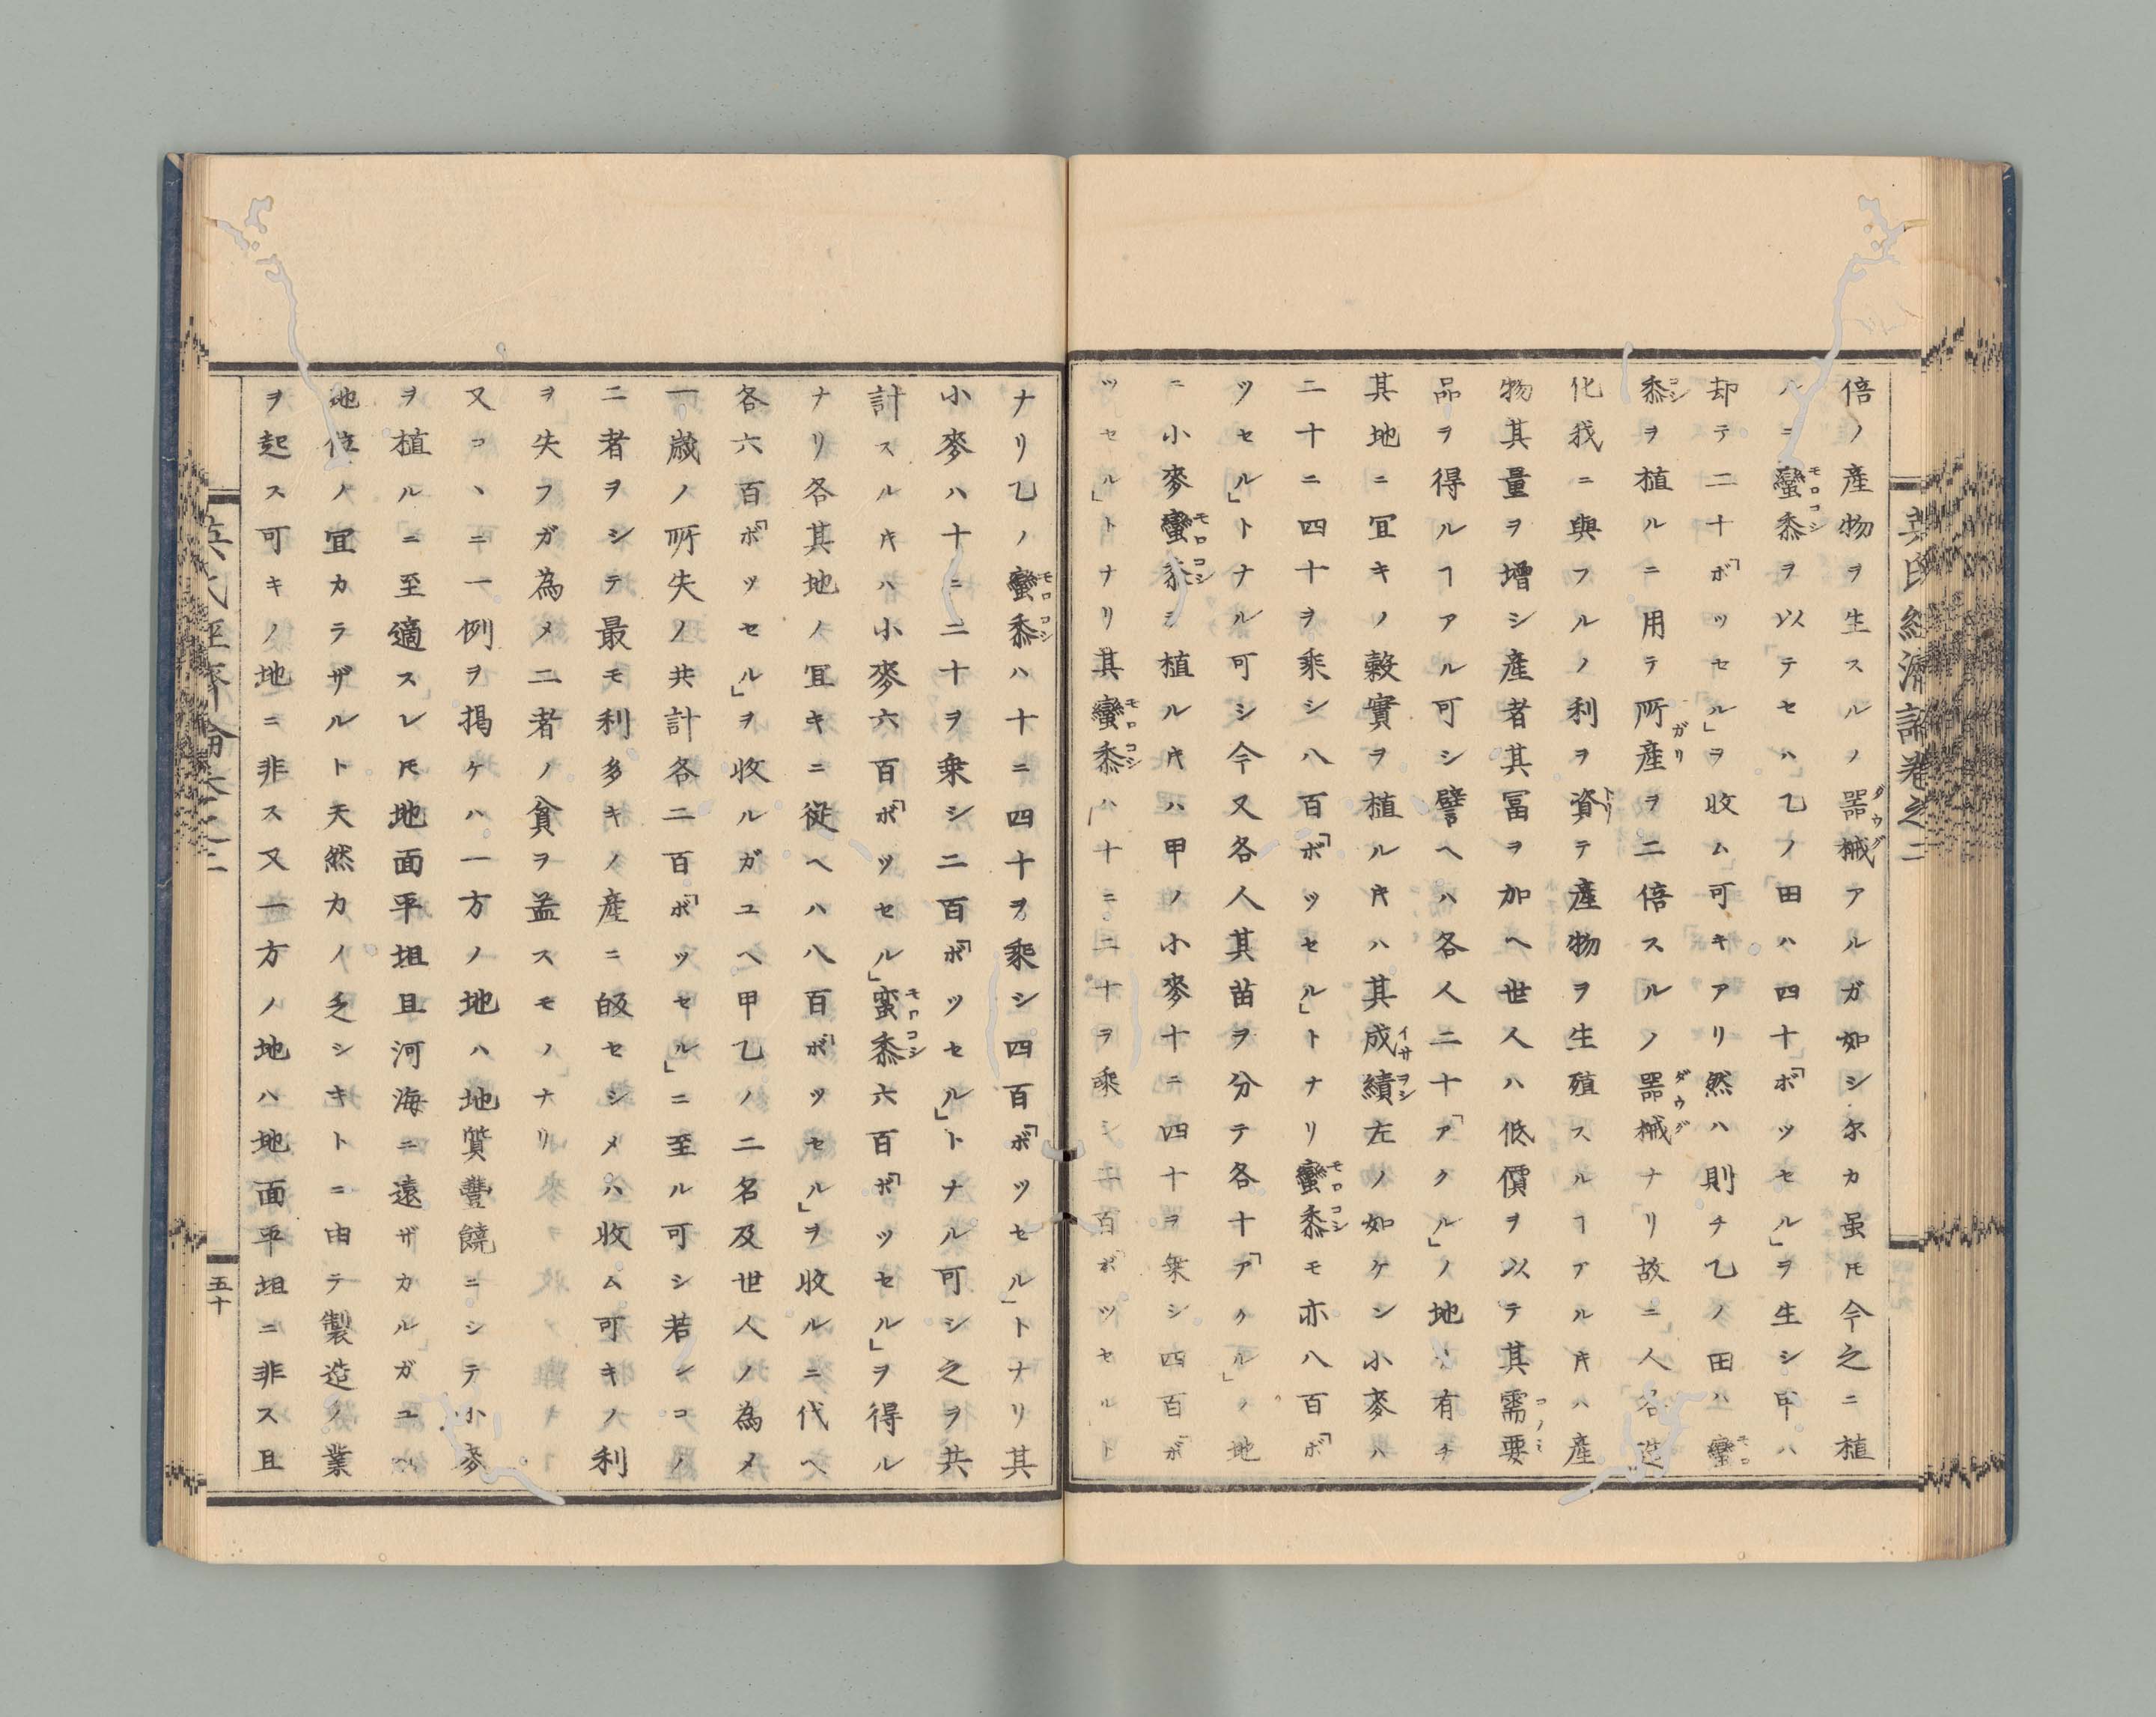 倍ノ産物ヲ生スルノ噐械アルガ如シ尓カ虽𪜈今之ニ植
ルニ蠻黍ヲ以テセハ乙ノ田ハ四十「ボッセル」ヲ生シ甲ハ
却テ二十「ボッセル」ヲ收ム可キアリ然ハ則チ乙ノ田ハ蠻
黍ヲ植ルニ用テ所産ヲ二倍スルノ噐械ナリ故ニ人各造
化我ニ與フルノ利ヲ資テ産物ヲ生殖スルヿアルキハ産
物其量ヲ増シ産者其冨ヲ加ヘ世人ハ低價ヲ以テ其需要
品ヲ得ルヿアル可シ譬ヘハ各人二十「アクル」ノ地ヲ有チ
其地ニ冝キノ穀實ヲ植ルキハ其成績左ノ如ケン小麥ハ
二十ニ四十ヲ乘シ八百「ボッセル」トナリ蠻黍モ亦八百「ボ
ッセル」トナル可シ今又各人其苗ヲ分テ各十「アクル」ノ地
ニ小麥蠻黍ヲ植ルキハ甲ノ小麥十ニ四十ヲ乗シ四百「ボ
ッセル」トナリ其蠻黍ハ十ニ二十ヲ乘シ二百「ボッセルト
英氏經濟論卷之二
ナリ乙ノ蠻黍ハ十ニ四十ヲ乘シ四百「ボッセル」トナリ其
小麥ハ十ニ二十ヲ乗シ二百「ボッセル」トナル可シ之ヲ共
計スルキハ小麥六百「ボッセル」蛮黍六百「ボッセル」ヲ得ル
ナリ各其地ノ冝キニ従ヘハ八百「ボッセル」ヲ收ルニ代ヘ
各六百「ボッセル」ヲ收ルガユヘ甲乙ノ二名及世人ノ為メ
一歳ノ所失ノ共計各二百「ボッセル」ニ至ル可シ若シコノ
二者ヲシテ最モ利多キノ産ニ皈セシメハ收ム可キノ利
ヲ失フガ為メ二者ノ貧ヲ益スモノナリ
又コヽニ一例ヲ掲ケハ一方ノ地ハ地質豐饒ニシテ小麥
ヲ植ルニ至適スレ𪜈地面平坦且河海ニ遠ザカルガユヘ
地位ノ冝カラザルト天然力ノ乏シキトニ由テ製造ノ業
ヲ起ス可キノ地ニ非ス又一方ノ地ハ地面平坦ニ非ス且
五十